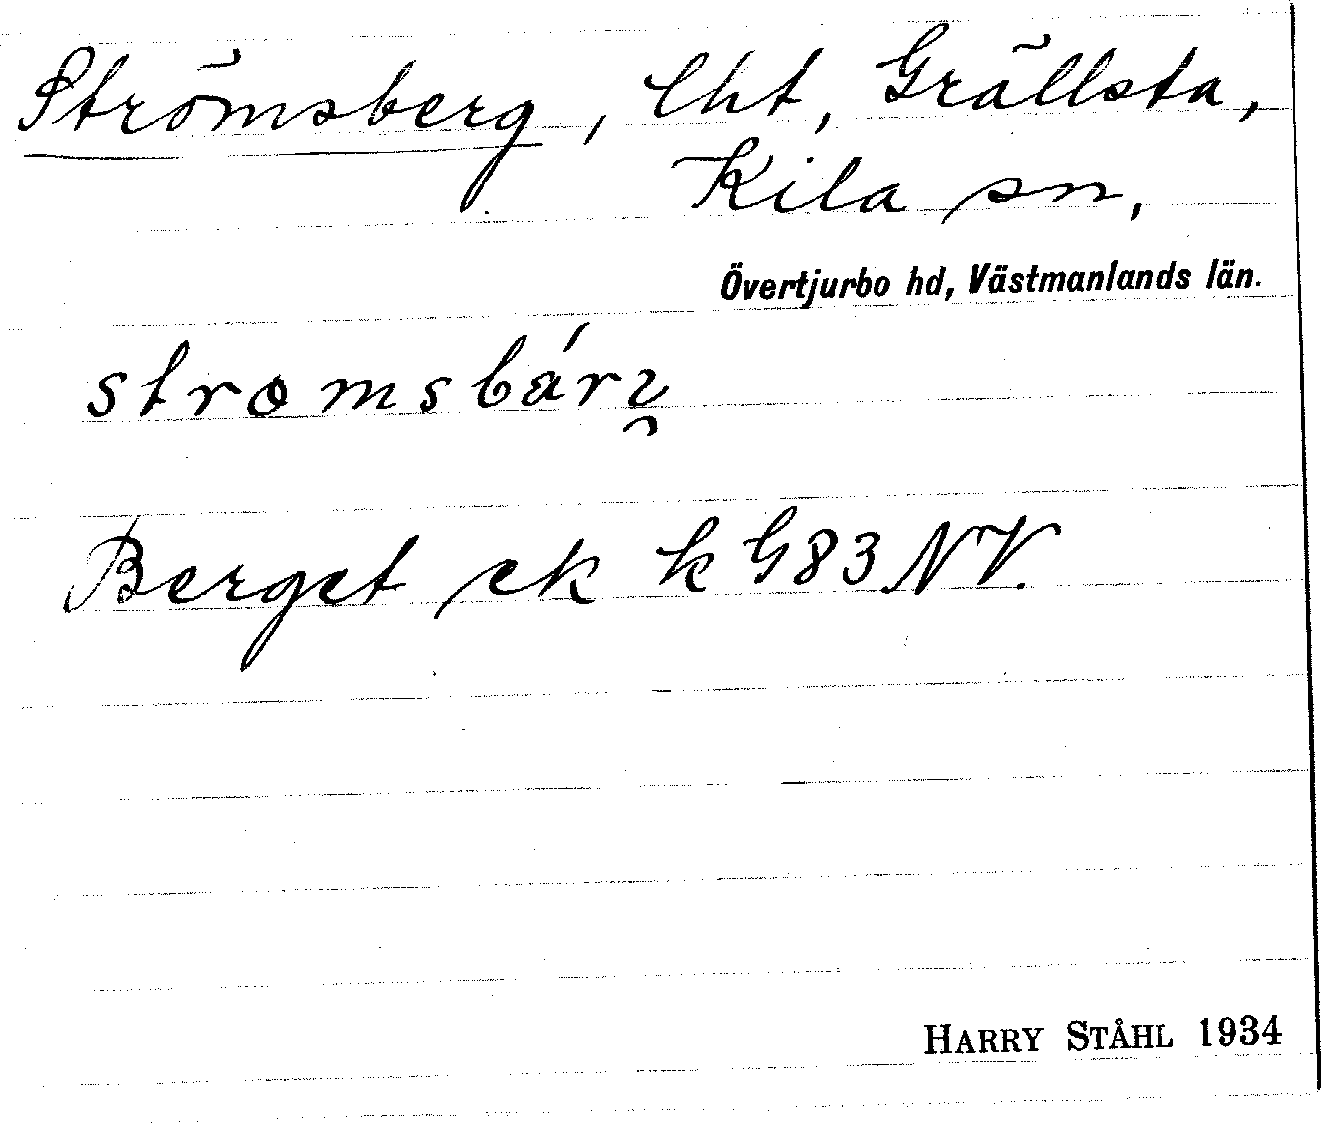 Strömsberg, lht, Grällsta,
Kila sn,
Övertjurbo hd, Västmanlands län.
Berget ek k G83 NV.
HARRY STÅHL 1934